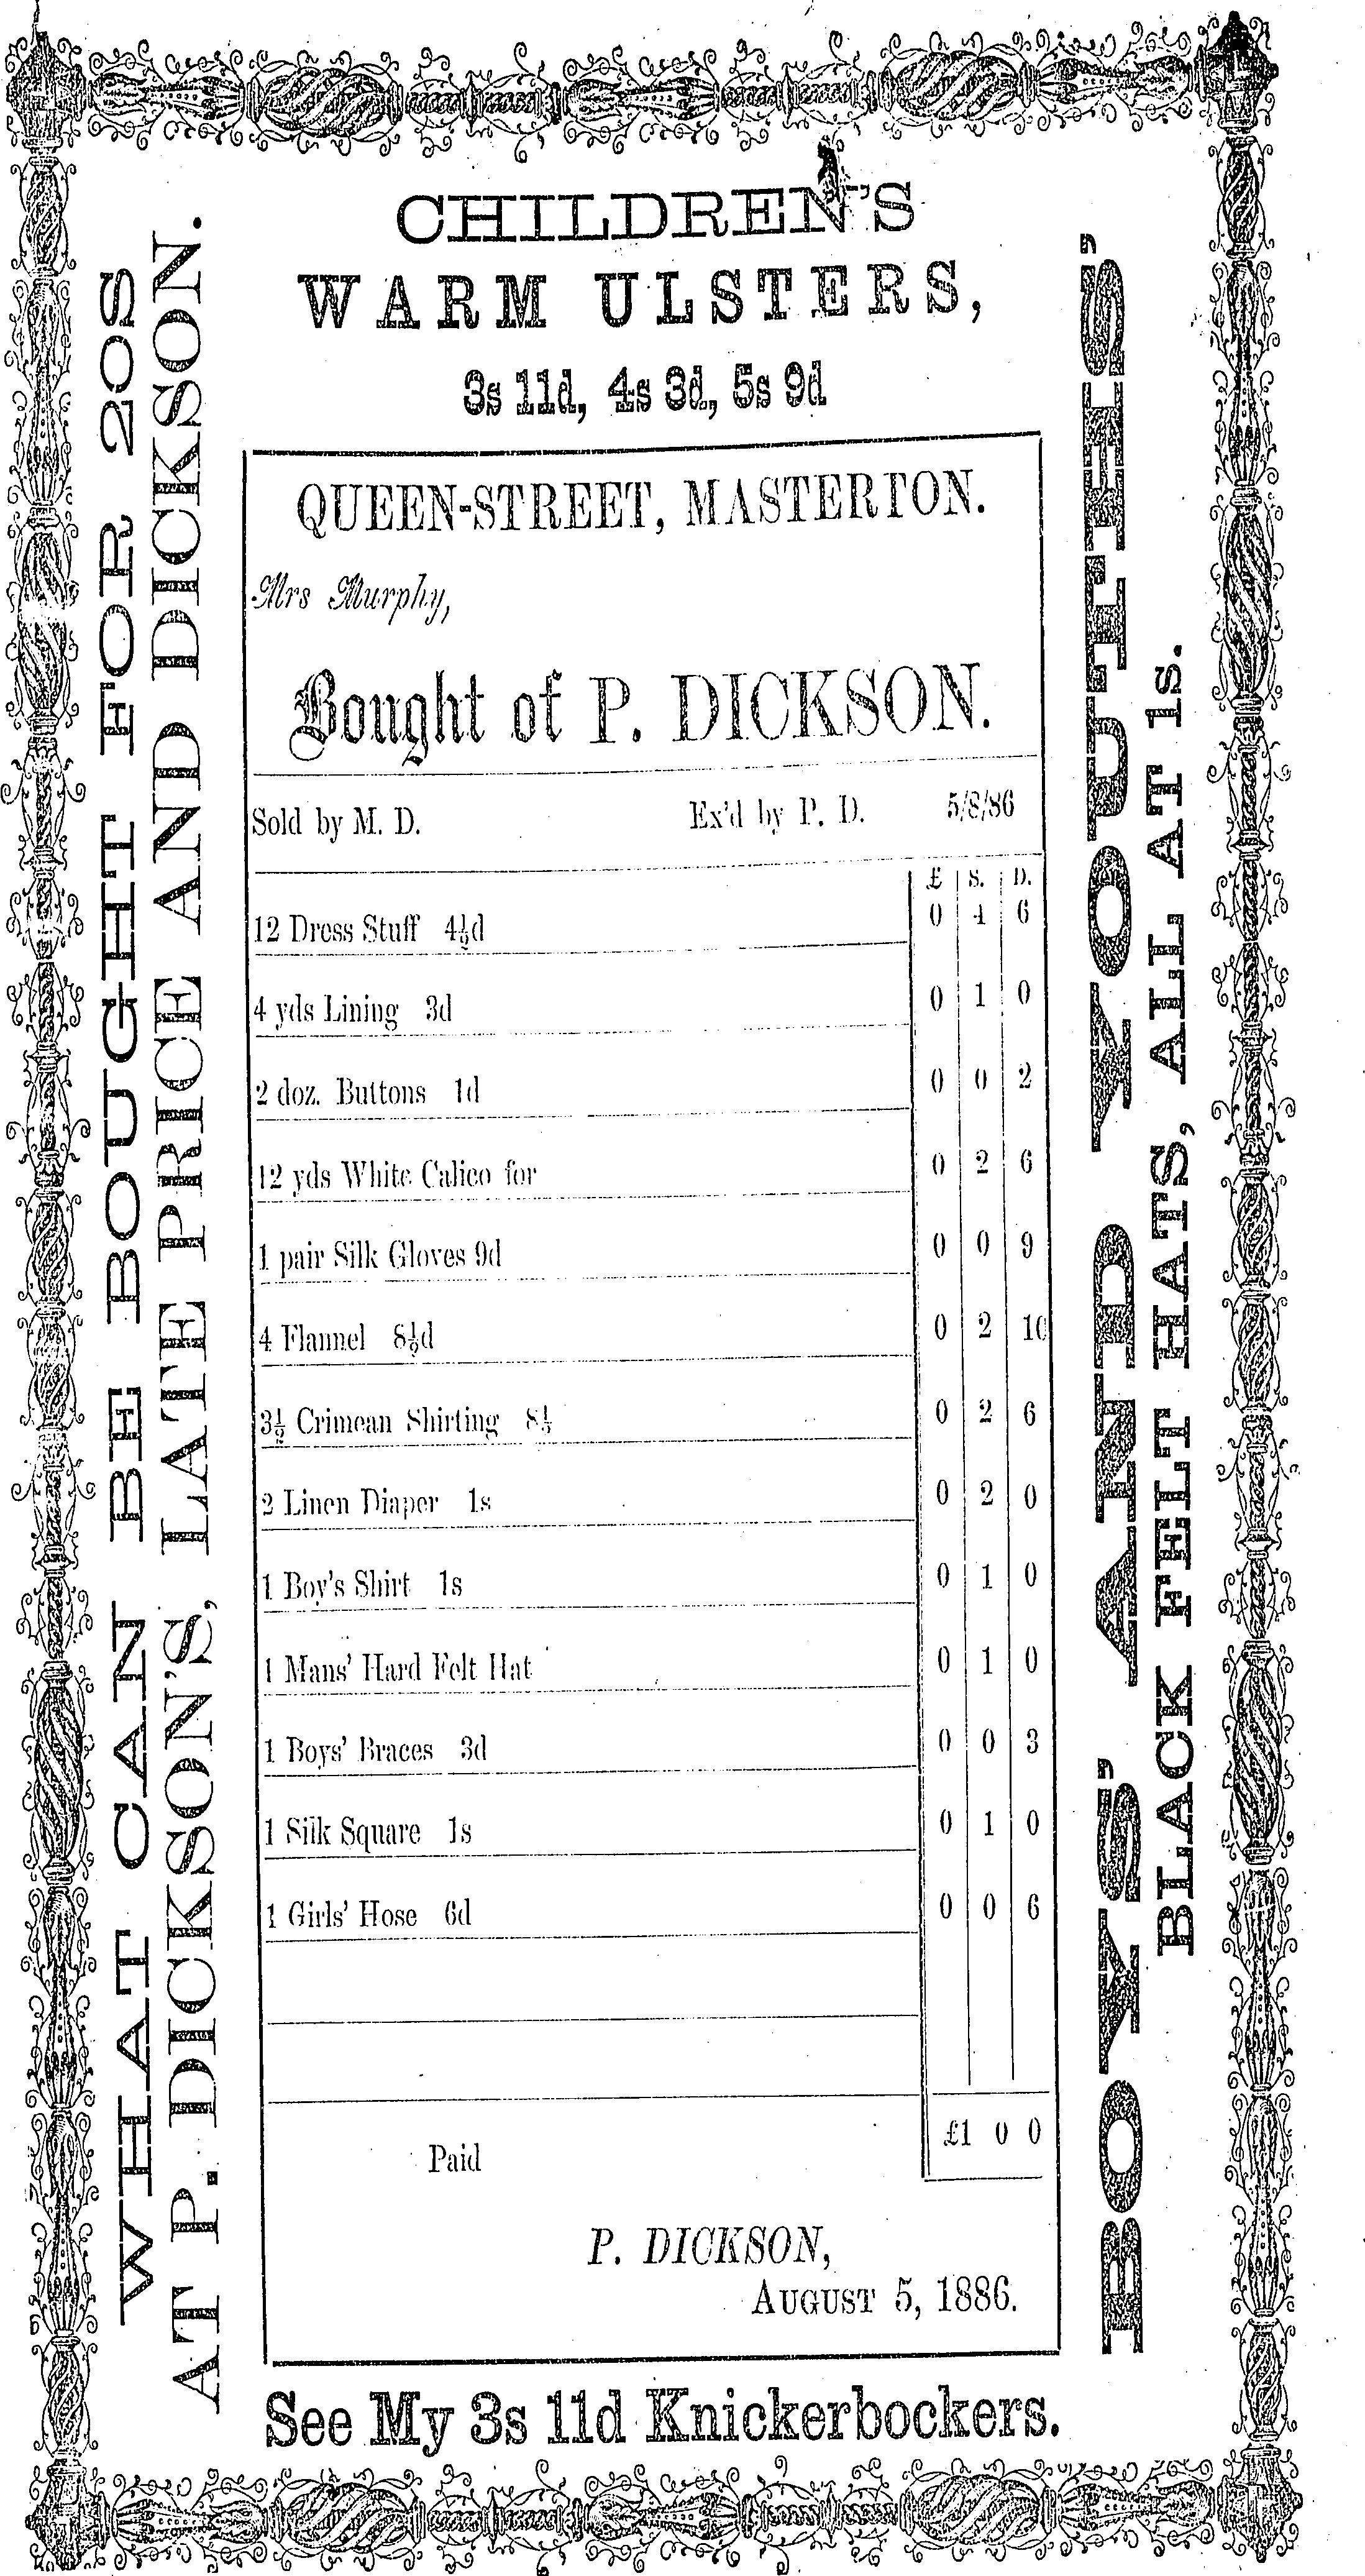 CHILDREN'S
WARM ULSTERS,
3s 11d, 4s 3d, 5s 9d
WHAT CAN BE BOUGHT FOR 20S
AT P. DICKSON'S, LATE PRICE AND DICKSON.
QUEEN-STREET, MASTERTON.
Mrs Murphy,
Bought of P. DICKSON.
Sold by M. D. Ex'd by P. D. 5/8/86
£ S. D.
12 Dress Stuff 4½d 0 4 6
4 yds Lining 3d 0 1 0
2 doz. Buttons 1d 0 0 2
12 yds White Calico for 0 2 6
1 pair Silk Gloves 9d 0 0 9
4 Flannel 8½d 0 2 10
3½ Crimean Shirting 8½ 0 2 6
2 Linen Diaper 1s 0 2 0
1 Boy's Shirt 1s 0 1 0
1 Mans' Hard Felt Hat 0 1 0
1 Boys' Braces 3d 0 0 3
1 Silk Square 1s 0 1 0
1 Girls' Hose 6d 0 0 6
Paid £1 0 0
P. DICKSON,
AUGUST 5, 1886.
BOYS' AND YOUTHS'
BLACK FELT HATS, ALL AT 1s.
See My 3s 11d Knickerbockers.